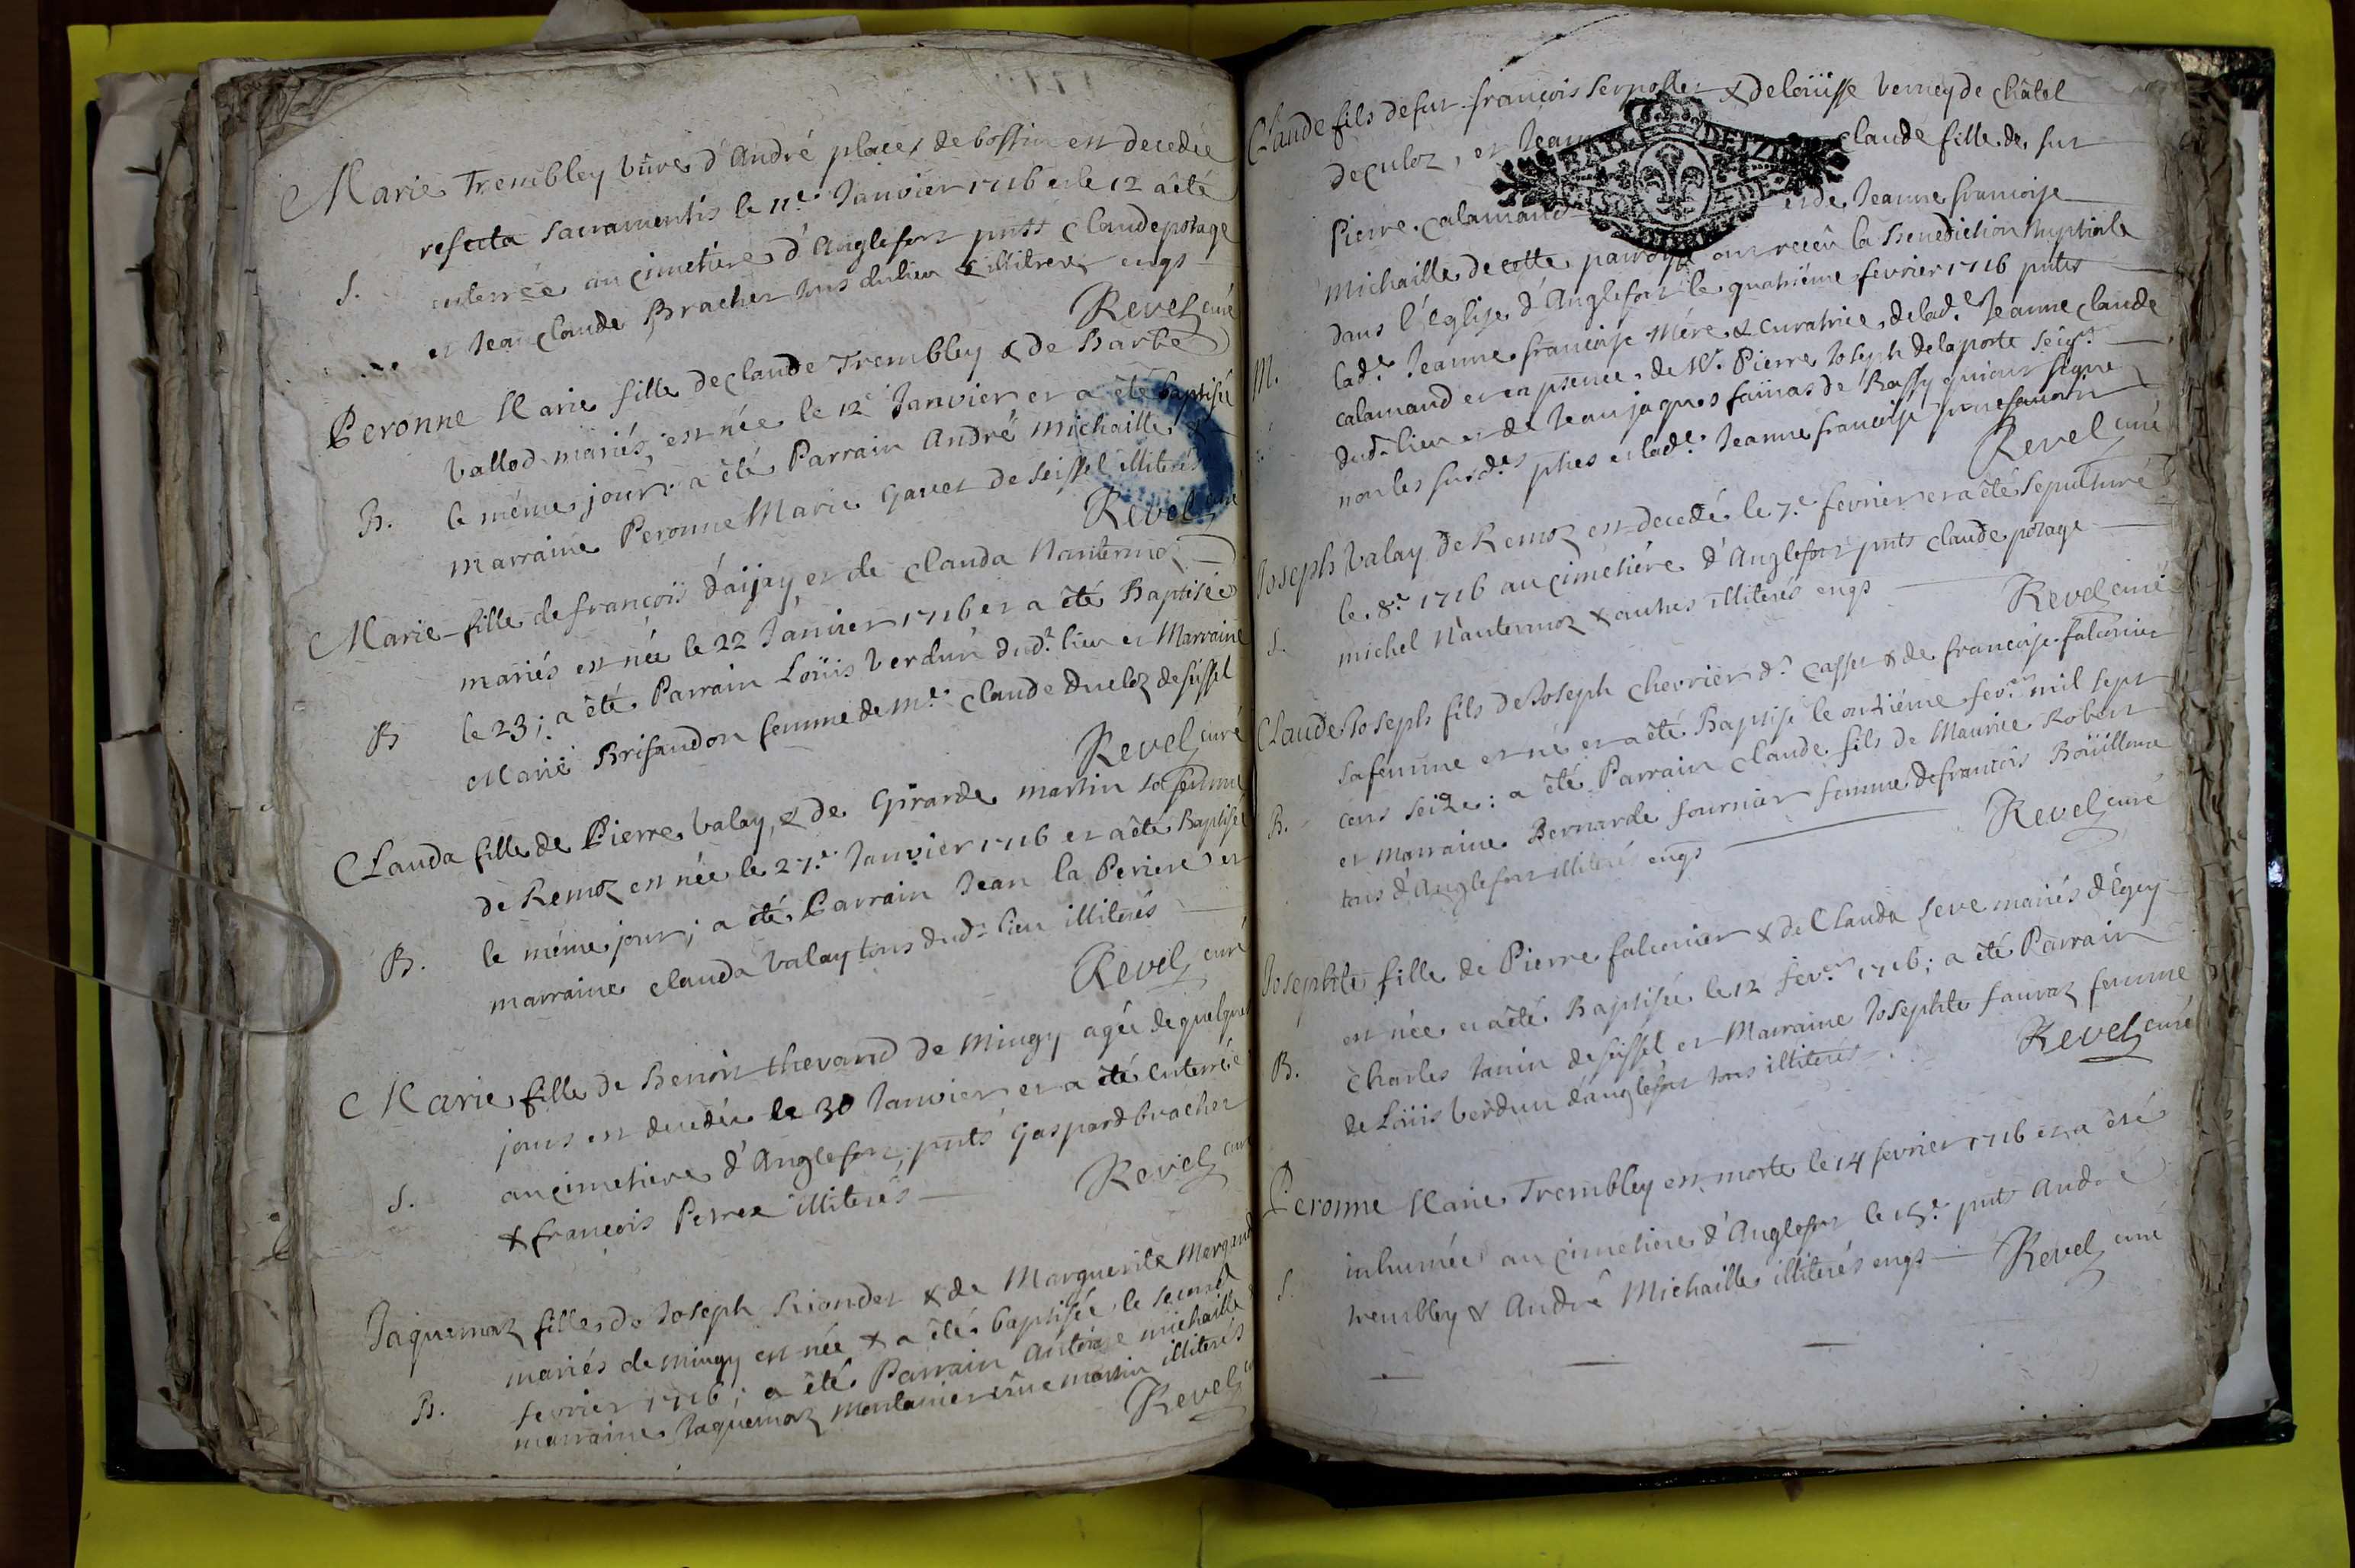 Marie Trembley vûve d'André places de bossin est decedée
refecta sacramentis le 11e Janvier 1716 et le 12 a êté
S. enterrée au cimetiére d'Anglefort pnts Claude potage
et Jean claude Bracher tous dulieu & illitrés enqs
Revel curé
Peronne Marie fille de claude Trembley & de Barbe
vallod mariés, est née le 12e Janvier et a êté baptisée
B. le même jour: a êté Parrain André michaille &
marraine Peronne Marie Gaver de seissel illiterés
Revel curé
Marie fille de françois d'aijay et de clauda Nantermoz
mariés est née le 22 Janvier 1716 et a êté Baptisée
B le 23; a êté Parrain Loüis verdun dud. lieu et Marraine
Marie Brisandon femme de mr. claude Ducloz de seissel
Revel curé
Clauda fille de Pierre valay, & de Girarde martin sa femme
de Remoz est née le 27e Janvier 1716 et a êté Baptisée
B. le même jour; a êté Parrain Jean la Periere et
marraine clauda valay tous dud. lieu illiterés
Revel curé
Marie fille de Benoit thevand de Mingy agée de quelques
jours est decedée le 30 Janvier et a êté enterrée
S. au cimetiere d'Anglefort; pnts Gaspard bracher
& françois Perrex illiterés
Revel curé
Jaquemaz fille de Joseph Riondet & de Marguerite
mariés de mingy est née & a êté baptisée le second
B. fevrier 1716; a êté Parrain Antoine michaille
marraine Jaquemaz montanier vûve martin illiterés
Revel
Claude fils de fut françois serpollet & de loüisse verney de châtel
de culoz, et Jean claude fille de fut
Pierre calamand et de Jeanne francoise
michaille de cette paroisse ont receu la Benediction Nuptiale
dans l'église d'Anglefort le quatriême fevrier 1716 pntes
M. lade. Jeanne francoise Mére & curatrice de lad.e Jeanne claude
calamand et en psence de Mr. Pierre Joseph delaporte seigr.
dud. lieu et de Jean jaques de Bassy qui ont signé
non les susd.es phes et lade. Jeanne francoise pr ne savoir
Revel curé
Joseph valay de Remoz est decedé le 7.e fevrier et a êté sepulturé
le 8.e 1716 au cimetiére d'Anglefort pnts claude potage
S. michel Nantermoz & autres illiterés enqs
Revel curé
Claude Joseph fils de Joseph chevrier dt. casset & de francoise falconier
sa femme est né et a êté Baptisé le onziéme fev.er mil sept
B. cens seize: a êté Parrain claude fils de Maurice Robert
et marraine Bernarde fournier femme de francois Boüillone
tous d'Anglefort illiterés enqs
Revel curé
Josephte fille de Pierre falconier & de Clauda seve mariés d'Egey
est née et a êté Baptisée le 12 fev.er 1716; a êté Parrain
B. Charles Janin de seissel et Marraine Josephte sauvaz femme
de Loüis Verdun d'anglefort tous illiterés.
Revel curé
Peronne Marie Trembley est morte le 14 fevrier 1716 et a êté
inhumée au cimetiere d'Anglefort le 15.e pnts André
S. trembley & André Michaille illiterés enqs
Revel curé